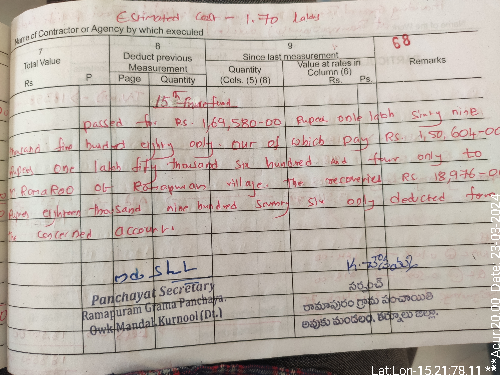 Estimated Cost - 1.70 lakhs
Name of Contractor or Agency by which executed
68
7
Total Value
Rs P
8
Deduct previous
Measurement
Page Quantity
9
Since last measurement
Quantity
(Cols. (5) (8)
Value at rates in
Column (6)
Rs. Ps.
Remarks
15th
passed for Rs. 1,69,580-00 Rupees one lakh sixty nine
thousand five hundred eighty only. Our of which Pay Rs. 1,50,604-00
Rupees one lakh fifty thousand six hundred and four only to
RamaRao of village. The recoveries Rs 18,976-00
Rupees eighteen thousand nine hundred seventy six only deducted form
concerned account.
Panchayat Secretary
Ramapuram Grama Panchaya.
Owk Mandal, Kurnool (Dt.)
సర్పంచ్
రామాపురం గ్రామ పంచాయితి
అవుకు మండలం, కర్నూలు జిల్లా.
Lat:Lon-15.21:78.11